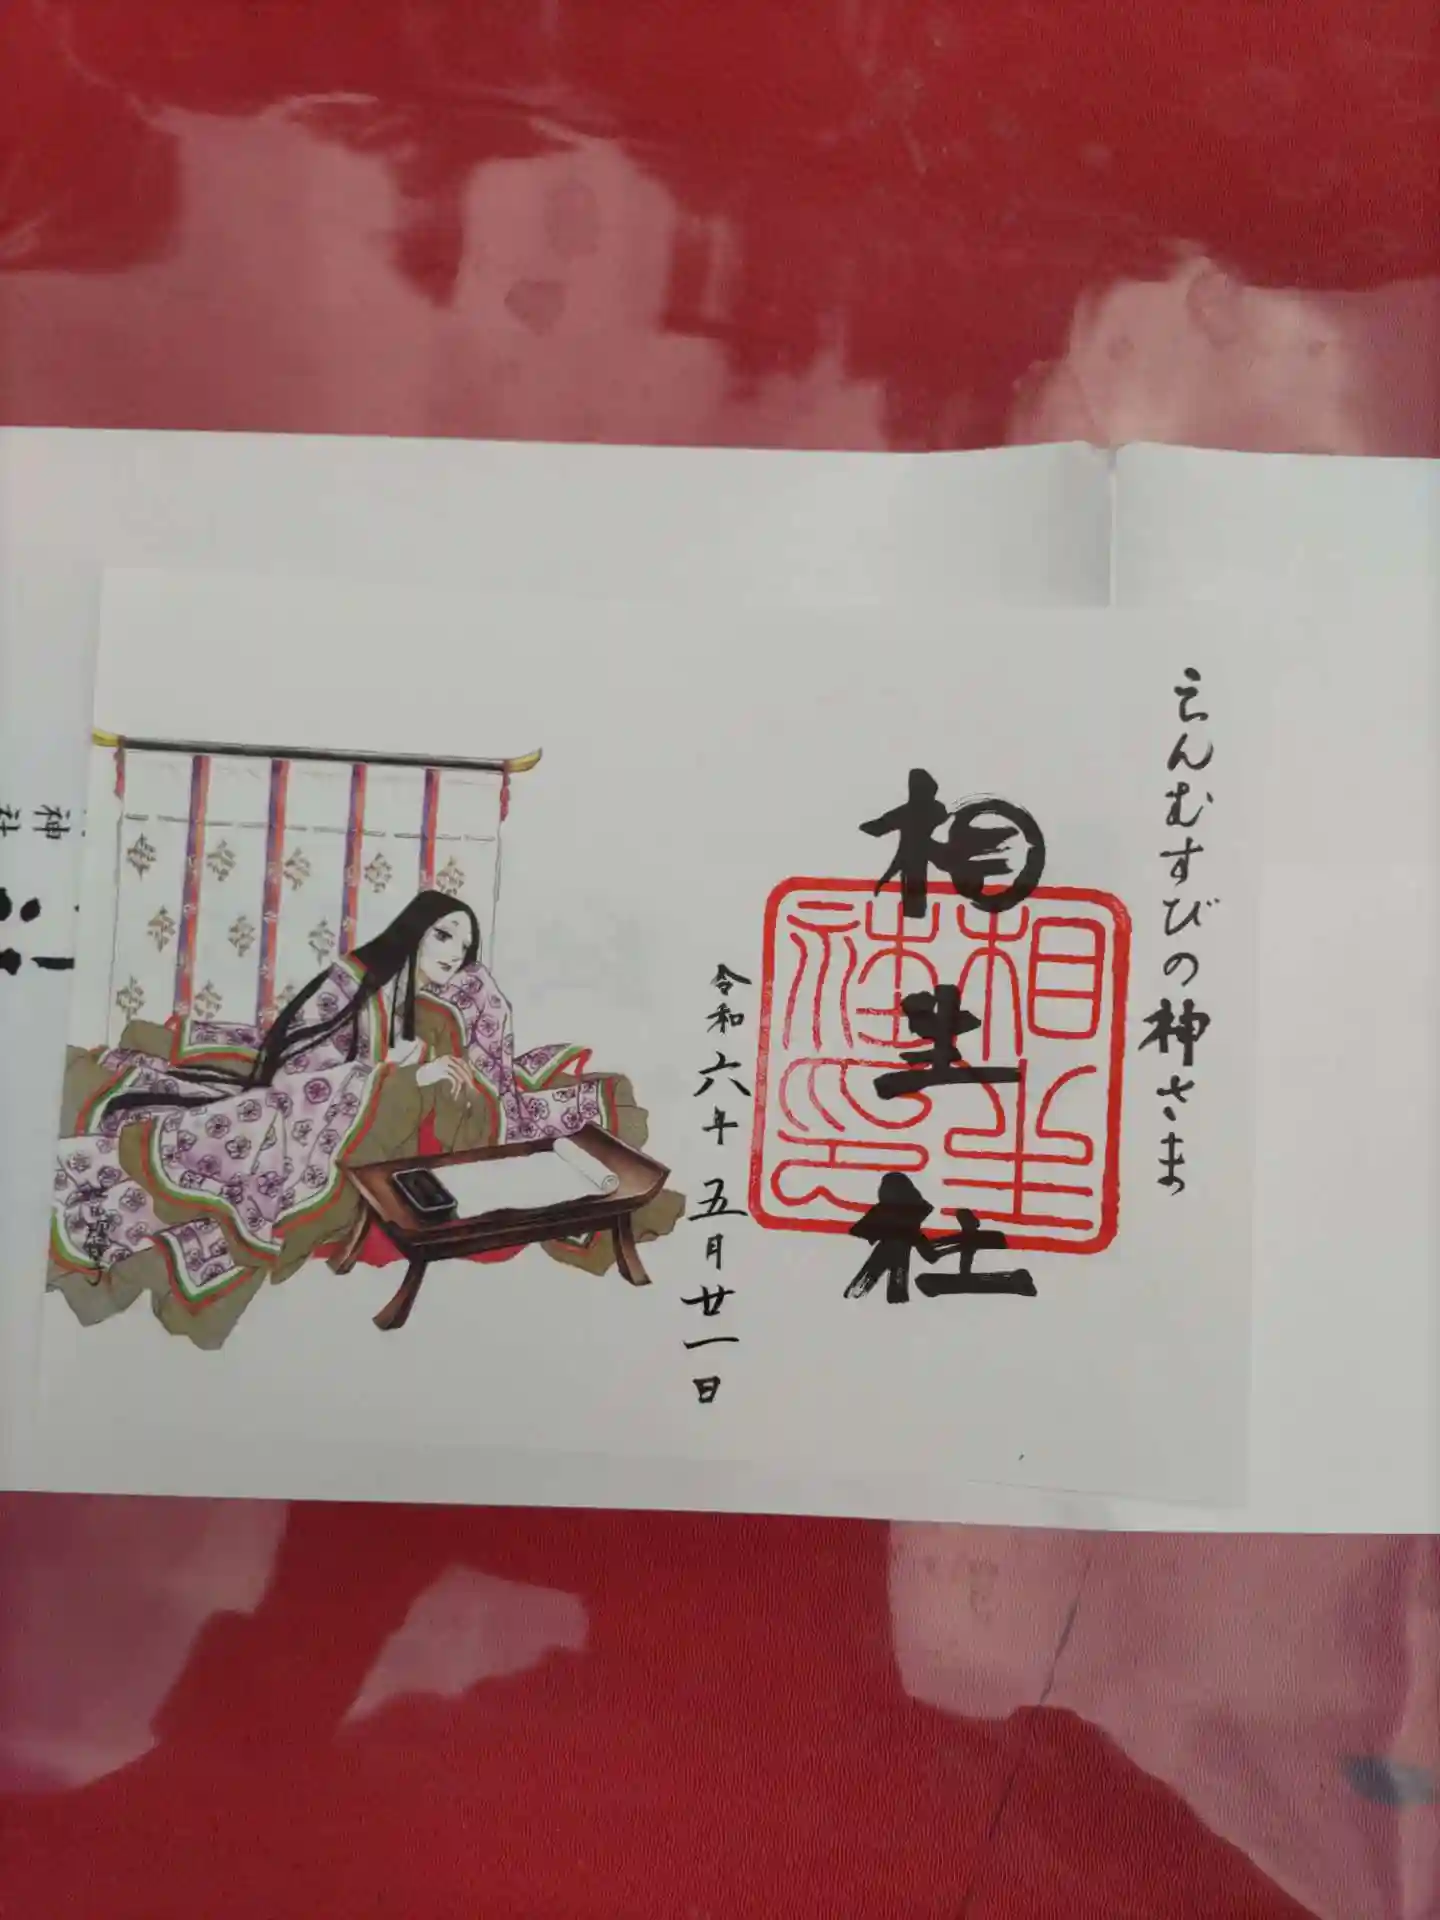 えんむすびの神さま
相生社
相生社之印
令和六年五月廿一日
神
社